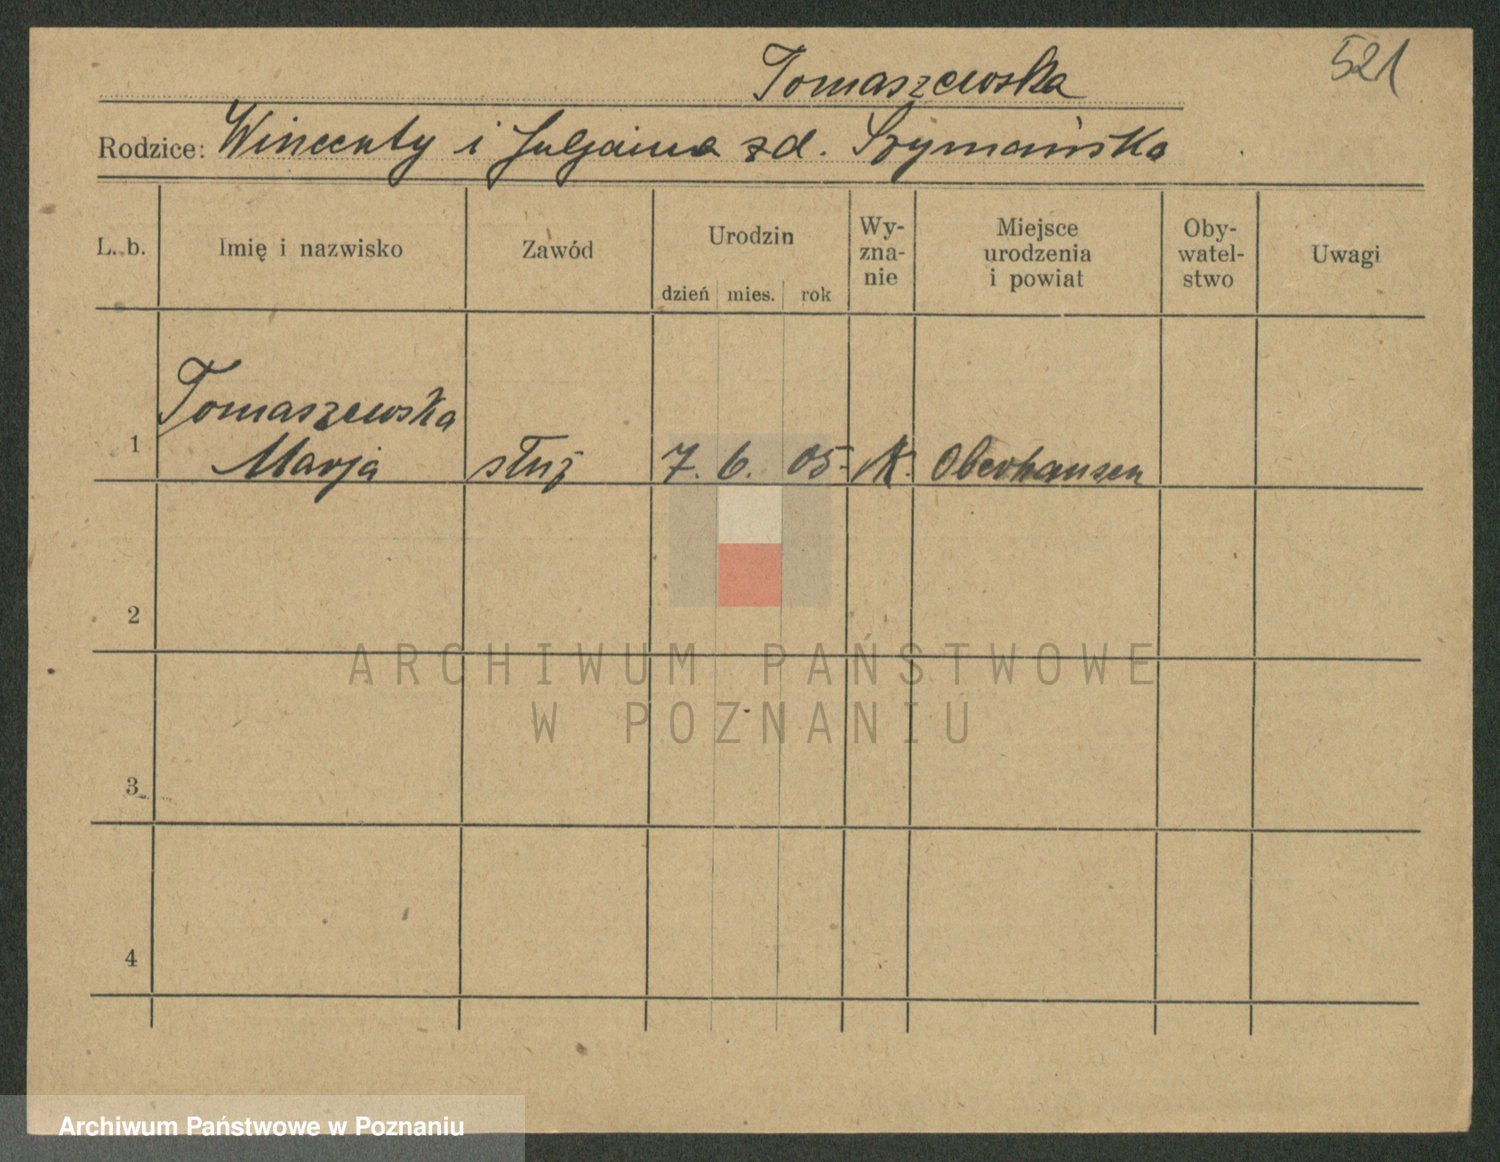 521
Tomaszewska
Rodzice: Wincenty i Juljanna zd. Szymańska
L. b. Imię i nazwisko Zawód Urodzin Wy- Miejsce Oby- Uwagi
zna- urodzenia watel-
nie i powiat stwo
dzień mies. rok
Tomaszewska
1 Marja służ 7. 6. 05. K. Oberhausen
2
3
4
ARCHIWUM PAŃSTWOWE
W POZNANIU
Archiwum Państwowe w Poznaniu